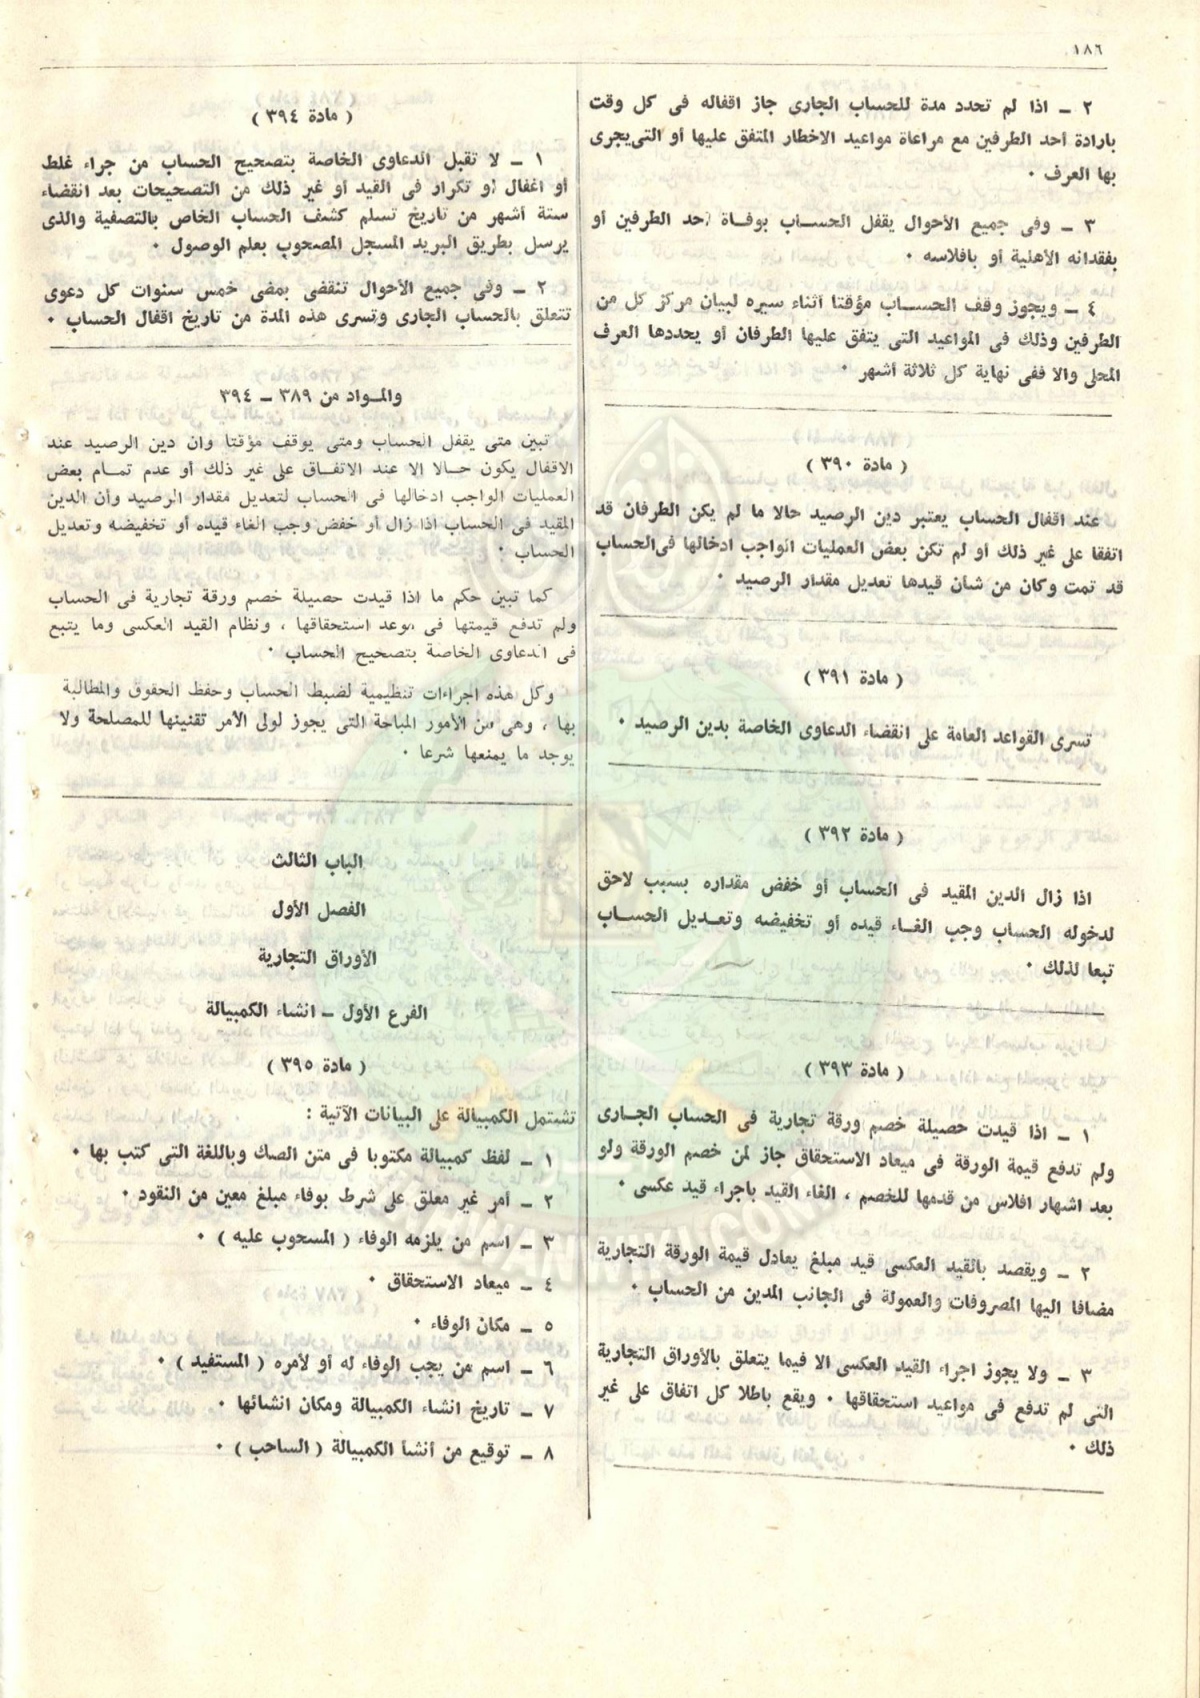 ١٨٦
٢ – اذا لم تحدد مدة للحساب الجارى جاز اقفاله فى كل وقت
بارادة أحد الطرفين مع مراعاة مواعيد الاخطار المتفق عليها أو التى يجرى
بها العرف ٠
٣ – وفى جميع الأحوال يقفل الحساب بوفاة أحد الطرفين أو
بفقدانه الأهلية أو بافلاسه ٠
٤ – ويجوز وقف الحساب مؤقتا أثناء سيره لبيان مركز كل من
الطرفين وذلك فى المواعيد التى يتفق عليها الطرفان أو يحددها العرف
المحلى والا ففى نهاية كل ثلاثة أشهر ٠
( مادة ٣٩٠ )
عند اقفال الحساب يعتبر دين الرصيد حالا ما لم يكن الطرفان قد
اتفقا على غير ذلك أو لم تكن بعض العمليات الواجب ادخالها فى الحساب
قد تمت وكان من شأن قيدها تعديل مقدار الرصيد ٠
( مادة ٣٩١ )
تسرى القواعد العامة على انقضاء الدعاوى الخاصة بدين الرصيد ٠
( مادة ٣٩٢ )
اذا زال الدين المقيد فى الحساب أو خفض مقداره بسبب لاحق
لدخوله الحساب وجب الغاء قيده أو تخفيضه وتعديل الحساب
تبعا لذلك ٠
( مادة ٣٩٣ )
١ – اذا قيدت حصيلة خصم ورقة تجارية فى الحساب الجارى
ولم تدفع قيمة الورقة فى ميعاد الاستحقاق جاز لمن خصم الورقة ولو
بعد اشهار افلاس من قدمها للخصم ، الغاء القيد باجراء قيد عكسى ٠
٢ – ويقصد بالقيد العكسى قيد مبلغ يعادل قيمة الورقة التجارية
مضافا اليها المصروفات والعمولة فى الجانب المدين من الحساب ٠
٣ – ولا يجوز اجراء القيد العكسى الا فيما يتعلق بالأوراق التجارية
التى لم تدفع فى مواعيد استحقاقها ٠ ويقع باطلا كل اتفاق على غير
ذلك ٠
( مادة ٣٩٤ )
١ – لا تقبل الدعاوى الخاصة بتصحيح الحساب من جراء غلط
أو اغفال أو تكرار فى القيد أو غير ذلك من التصحيحات بعد انقضاء
ستة أشهر من تاريخ تسلم كشف الحساب الخاص بالتصفية والذى
يرسل بطريق البريد المسجل المصحوب بعلم الوصول ٠
٢ – وفى جميع الأحوال تنقضى بمضى خمس سنوات كل دعوى
تتعلق بالحساب الجارى وتسرى هذه المدة من تاريخ اقفال الحساب ٠
والمواد من ٣٨٩ – ٣٩٤
تبين متى يقفل الحساب ومتى يوقف مؤقتا وان دين الرصيد عند
الاقفال يكون حالا الا عند الاتفاق على غير ذلك أو عدم تمام بعض
العمليات الواجب ادخالها فى الحساب لتعديل مقدار الرصيد وأن الدين
المقيد فى الحساب اذا زال أو خفض وجب الغاء قيده أو تخفيضه وتعديل
الحساب ٠
كما تبين حكم ما اذا قيدت حصيلة خصم ورقة تجارية فى الحساب
ولم تدفع قيمتها فى موعد استحقاقها ، ونظام القيد العكسى وما يتبع
فى الدعاوى الخاصة بتصحيح الحساب ٠
وكل هذه اجراءات تنظيمية لضبط الحساب وحفظ الحقوق والمطالبة
بها ، وهى من الأمور المباحة التى يجوز لولى الأمر تقنينها للمصلحة ولا
يوجد ما يمنعها شرعا ٠
الباب الثالث
الفصل الأول
الأوراق التجارية
الفرع الأول – انشاء الكمبيالة
( مادة ٣٩٥ )
تشتمل الكمبيالة على البيانات الآتية :
١ – لفظ كمبيالة مكتوبا فى متن الصك وباللغة التى كتب بها ٠
٢ – أمر غير معلق على شرط بوفاء مبلغ معين من النقود ٠
٣ – اسم من يلزمه الوفاء ( المسحوب عليه ) ٠
٤ – ميعاد الاستحقاق ٠
٥ – مكان الوفاء ٠
٦ – اسم من يجب الوفاء له أو لأمره ( المستفيد ) ٠
٧ – تاريخ انشاء الكمبيالة ومكان انشائها ٠
٨ – توقيع من أنشأ الكمبيالة ( الساحب ) ٠